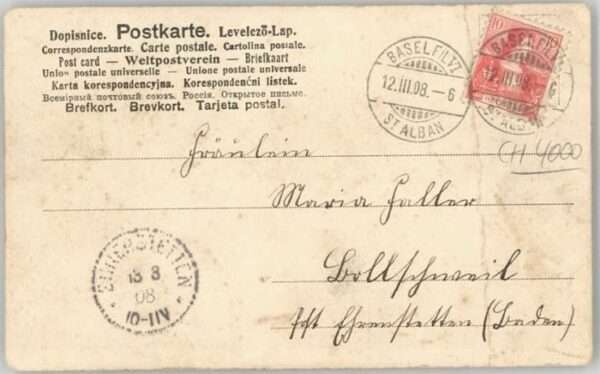 Dopisnice. Postkarte. Levelező-Lap.
Correspondenzkarte. Carte postale. Cartolina postale.
Post card — Weltpostverein — Briefkaart
Union postale universelle — Unione postale universale
Karta korespondencyjna. Korespondenční listek.
Всемірный почтовый союзъ. Россія. Открытое письмо.
Brefkort. Brevkort. Tarjeta postal.
BASEL FIL. VI
12.III.08.–6
ST ALBAN
10
BASEL FIL. VI
12.III
6
ST ALBAN
CH 4000
Fräulein
Maria Faller
Bollschweil
Ehrenstetten (Baden)
13 3
08